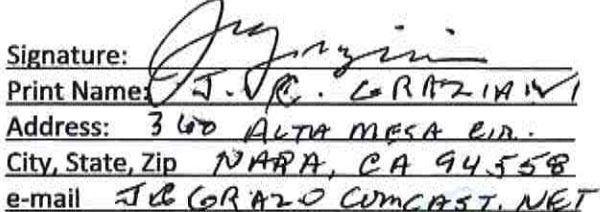 Signature:
Print Name: J. R. GRAZIANI
Address: 360 ALTA MESA CIR.
City, State, Zip NAPA, CA 94558
e-mail COMCAST.NET